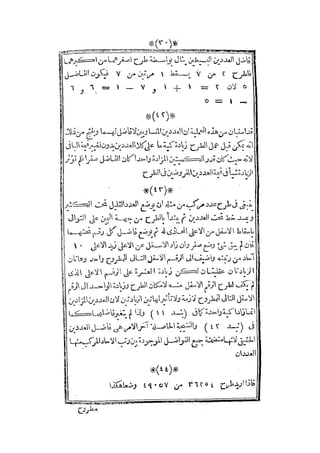 *(٣٠)*
فاضل العددين البسيطين ينال بواسطة طرح اصغرهما من اكبرهما
فلطرح ٢ من ٧ يسقط ١ مرتين من ٧ فيكون الفاضل
٥ لان ٢ = ١ + ١ و ٧ − ١ = ٦ و ٦
− ١ = ٥
*(٤٢)*
قد استبان من هذه العملية ان العددين المتساويين لا فاضل لهما وينتج من ذلك
انه يمكن قبل عمل الطرح زيادة كمية ما على كلا العددين بدون تغيير قيمة الباقى
لانه حيث كان قدر الكميتين المزادة واحدا كان الفاضل صفرا فلم تؤثر
الزيادة شيأ فى قيمة العددين المفروضين فى الطرح
*(٤٣)*
ينبغى فى طرح عدد مركب من مثله ان يوضع العدد القليل تحت الكثير
ويمد خط تحت العددين ثم يبتدأ بالطرح من جهة اليمين على التوالى
باسقاط الاسفل من الاعلى المحاذى له ثم يوضع فاضل كل رقم تحتهما
فان لم يبق شئ وضع صفر وان زاد الاسفل عن الاعلى زيد الاعلى ١٠
آحاد من رتبته واضيف الى الرقم الاسفل التالى للمطروح واحد وهاتان
الزيادتان حقيقيتان لكن زيادة العشرة على الرقم الاعلى الذى
لم يكف لطرح الرقم الاسفل منه لامكان الطرح وزيادة الواحد الى الرقم
الاسفل التالى للمطروح لازمة ولا تأثير لهاتين الزيادتين لان العددين المزادين
انما زادا كمية واحدة كما فى (بند ١١) ولذا لم يتغير فاضلهما كما
فى (بند ٤٢) والنتيجة الحاصلة آخر الامر هى فاضل العددين
الحقيقى لانها متضمنة جميع الفواضل الموجودة بين رتب الآحاد المركب منها
العددان
*(٤٤)*
فاذا اريد طرح ٣٦٢٥٤ من ٤٩٠٥٧ وضعا هكذا
مطروح